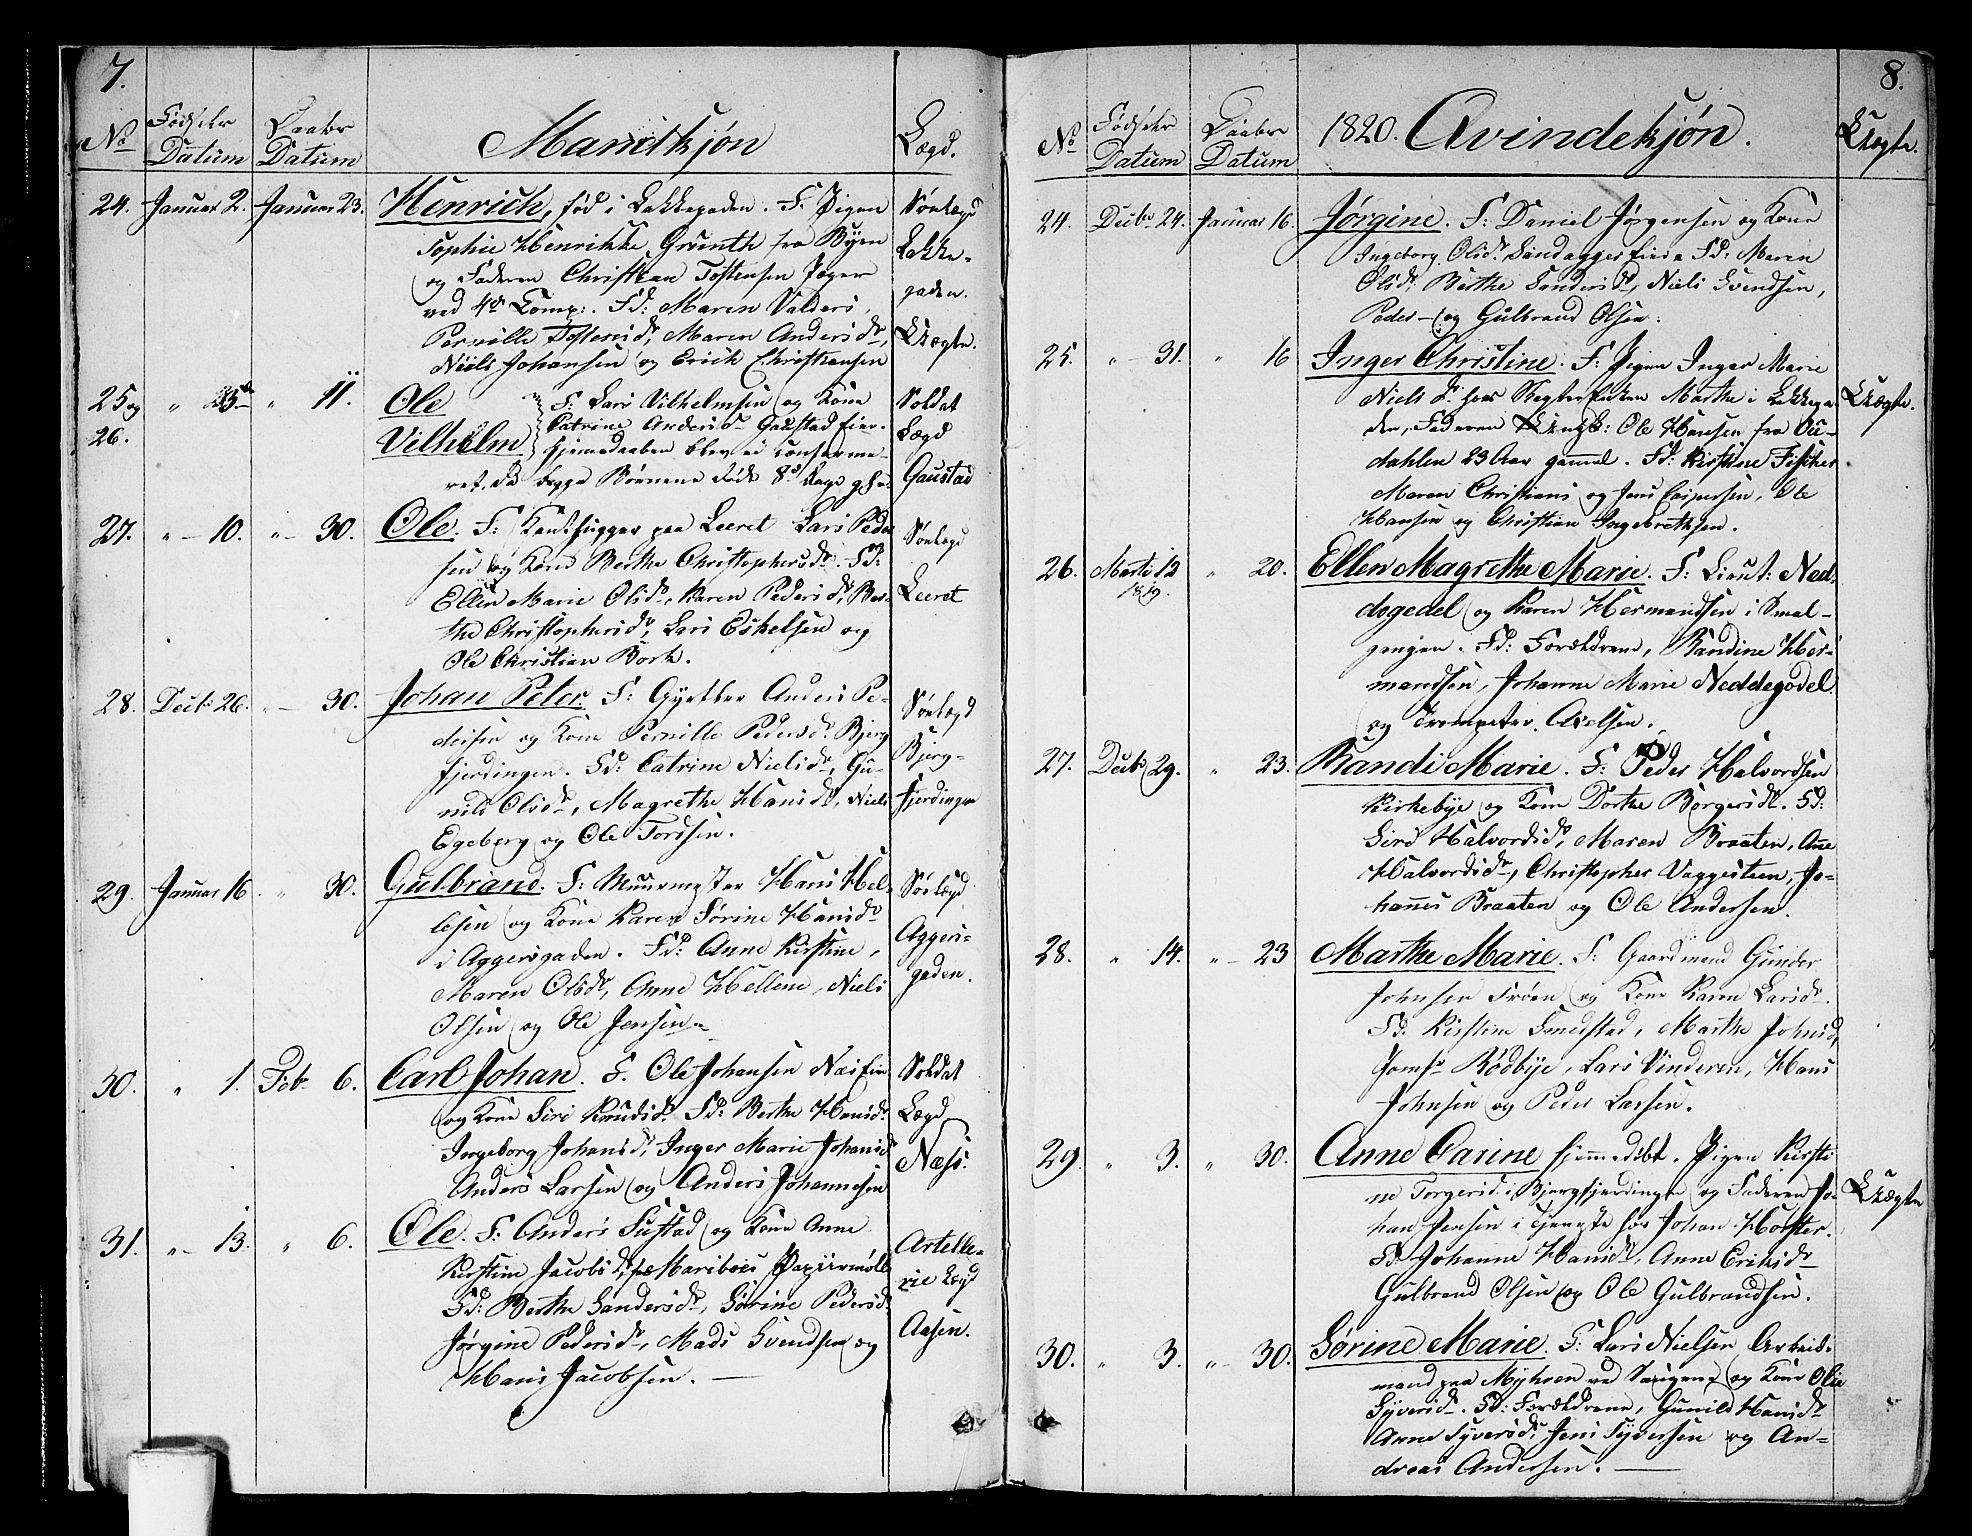 7.
No
Fødsels Datum
Daabs Datum
Mandkjøn
Lægd.
24. Januar 2. Januar 23. Henrich, fød i Lakkegaden. F. Pigen
Sophie Henrikke Gruenth fra Byen
og Faderen Christian Tostensen Jæger
ved 4de Comp: Fd: Maren Valders,
Pernille Tostensdr, Maren Andersdr,
Niels Johansen og Erich Christiansen
Sørlægd
Lakke-
gaden.
Uægte.
25 og " 11. Ole F: Lars Vilhelmsen og Kone
26. Vilhelm Catrine Andersdr Gaustad Eier.
hjemmedaaben blev ei conferme-
ret. da begge Børnene døde 8 Dage
Soldat
Lægd
Gaustad
27. " 10. " 30. Ole. F: Kanthugger paa Leeret Lars Peder
sen og Kone Berthe Christophersdr. Fd:
Ellen Marie Olsdr, Karen Pedersdr, Ber-
the Christophersdr, Lars Eskelsen og
Ole Christian Bork.
Sørlægd
Leeret
28. Decbr 26. " 30. Johan Peter. F: Gyrtler Anders Pe-
dersen og Kone Pernille Pedersdr Bjerg
fjerdingen. Fd: Catrine Nielsdr, Gu-
nild Olsdr, Magrethe Hansdr, Niels
Egeberg og Ole Tordsen.
Sørlægd
Bjerg-
fjerdingen
29. Januar 16 " 30. Gulbrand. F: Muurmester Hans Hel-
lesen og Kone Karen Sørine Hansdr
i Aggersgaden. Fd: Anne Kirstine,
Maren Olsdr, Anne Hellene, Niels
Olsen og Ole Jensen
Sørlægd
Aggers-
gaden.
30. " 1. Feb 6. Carl Johan. F. Ole Johansen Næs Eie
og Kone Siri Knudsdr Fd: Berthe Hansdr
Ingeborg Johansdr, Inger Marie Johansd
Anders Larsen og Anders Johannesen
Soldat
Lægd
Næss.
31. " 13. " 6. Ole. F: Anders Sustad og Kone Anne
Kirstine Jacobsdr, Mariboes Papiirmølle
Fd: Berthe Sandersdr, Sørine Pedersdr
Jørgine Pedersdr, Mads Svendsen og
Hans Jacobsen.
Artelle-
rie Lægd
Aasen.
8.
No
Fødsels Datum
Daabs Datum
1820. Qvindekjøn.
Uægte.
24. Decbr 24. Januar 16. Jørgine. F: Daniel Jørgensen og Kone
Ingeborg Olsdr Sandagger Eie Fd: Maren
Olsdr Berthe Sandersdr, Niels Svendsen,
Peder og Gulbrand Olsen.
25. " 31. " 16 Inger Christine. F: Pigen Inger Marie
Niels dr hos Marthe i Lakkega-
den, Faderen Ungk: Ole Hansen fra Gu-
dahlen 23 Aar gammel. Fd: Kirstine Fischer
Maren Christians og Jens Caspersen, Ole
Hansen og Christian Ingebretksen.
Uægte.
26. Marti 12 1819. " 20. Ellen Magrethe Marie. F: Lieut: Ned-
degedel og Karen Hermandsen i Smal-
gangen. Fd: Forældrene, Randine Her-
mandsen, Johanne Marie Neddegodel
og Trompeter Axelsen.
27. Decbr 29. " 23. Randi Marie. F: Peder Halvordsen
Kirkebye og Kone Dorthe Børgersdr. Fd:
Siri Halvordsdr, Maren Braaten, Anne
Halvordsdr, Christopher Vaggesteen, Jo-
hannes Braaten og Ole Andersen.
28. " 14. " 23 Marthe Marie. F: Gaardmand Gunder
Johnsen Frøen og Kone Karen Larsdr.
Fd. Kirstine Smedstad, Marthe Johnsd,
Jomfr Rødbye, Lars Vinderen, Hans
Johnsen og Peder Larsen.
29. " 3. " 30. Anne Carine hjemmedøbt. Pigen Kirsti
ne Torgersdr i Bjergfjerdingen og Faderen Jo-
han Jensen i Tjeneste hos Johan Holster.
Fd. Johanne Hansdr, Anne Eriksdr
Gulbrand Olsen og Ole Gulbrandsen.
Uægte
30. " 3. " 30. Sørine Marie. F: Lars Nielsen Arbeids-
mand paa Myhren ved Saugene og Kone Olia
Syversdr. Fd: Forældrene, Gunild Hansdr
Anne Syversdr, Jens Syversen og An-
dreas Andersen.